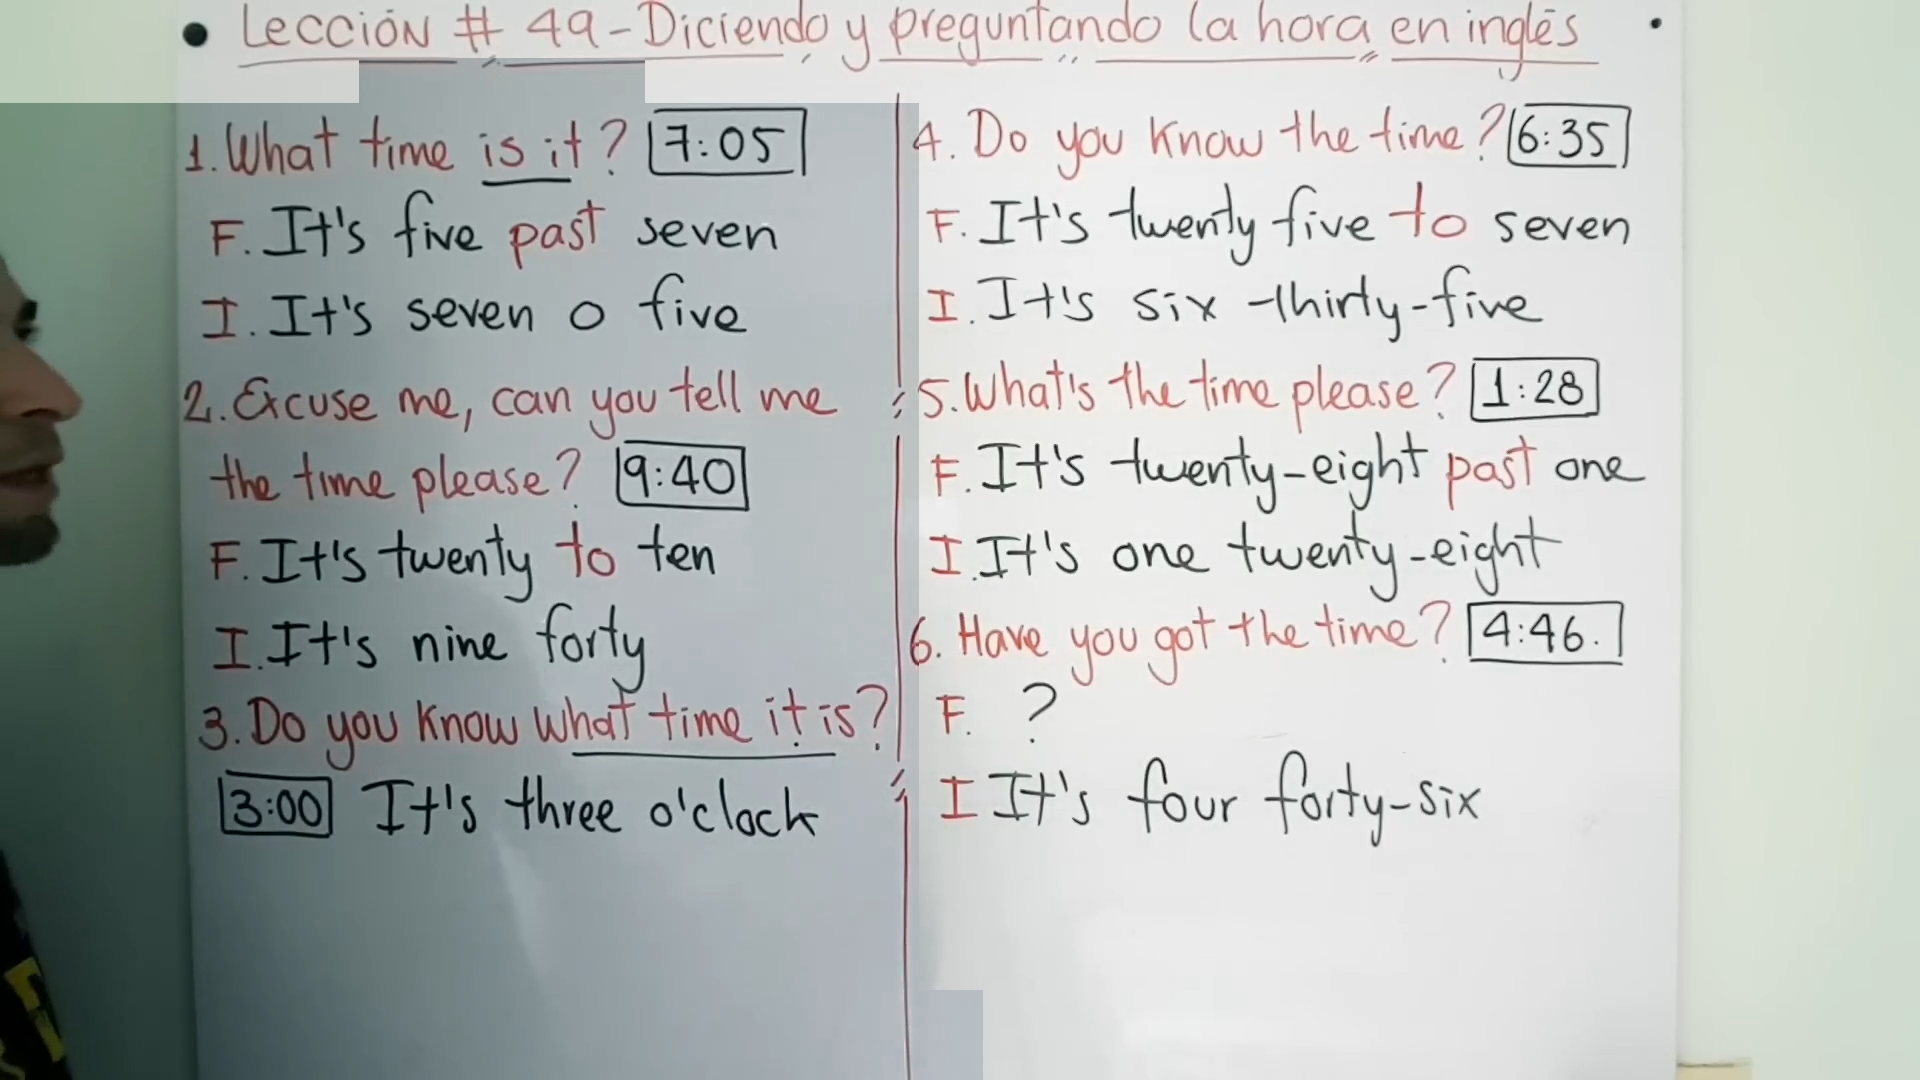 • Lección # 49 - Diciendo y preguntando la hora en inglés •
1. What time is it? 7:05
F. It's five past seven
I. It's seven o five
2. Excuse me, can you tell me
the time please? 9:40
F. It's twenty to ten
I. It's nine forty
3. Do you know what time it is?
3:00 It's three o'clock
4. Do you know the time? 6:35
F. It's twenty five to seven
I. It's six thirty-five
5. What's the time please? 1:28
F. It's twenty-eight past one
I. It's one twenty-eight
6. Have you got the time? 4:46.
F. ?
I It's four forty-six